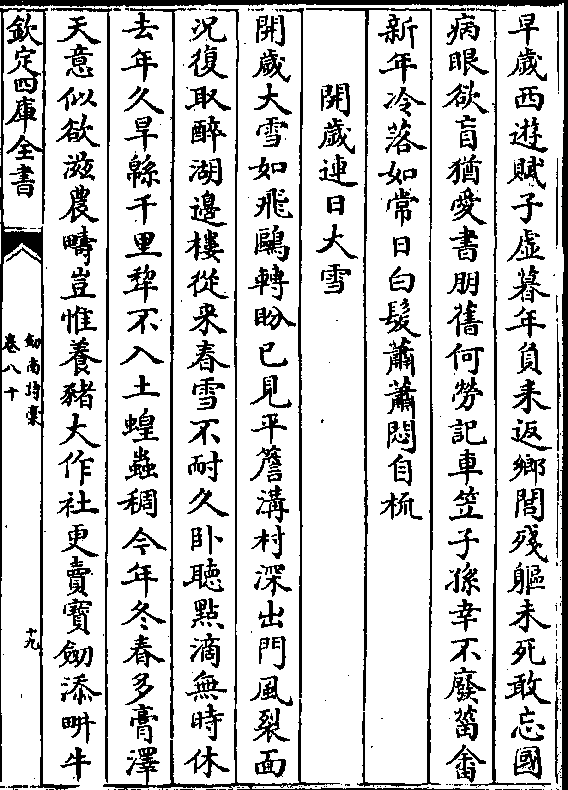 早歲西遊賦子虛暮年負耒返鄉閭殘軀未死敢忘國
病眼欲盲猶愛書朋舊何勞記車笠子孫幸不廢菑畬
新年冷落如常日白髮蕭蕭悶自梳
開歲連日大雪
開歲大雪如飛鷗轉盼已見平簷溝村深出門風裂面
況復取醉湖邊樓從來春雪不耐久卧聽點滴無時休
去年久旱緜千里犂不入土蝗蟲稠今年冬春多膏澤
天意似欲滋農疇豈惟養豬大作社更賣寶劒添畊牛
欽定四庫全書
劒南詩稾
卷八十
十九